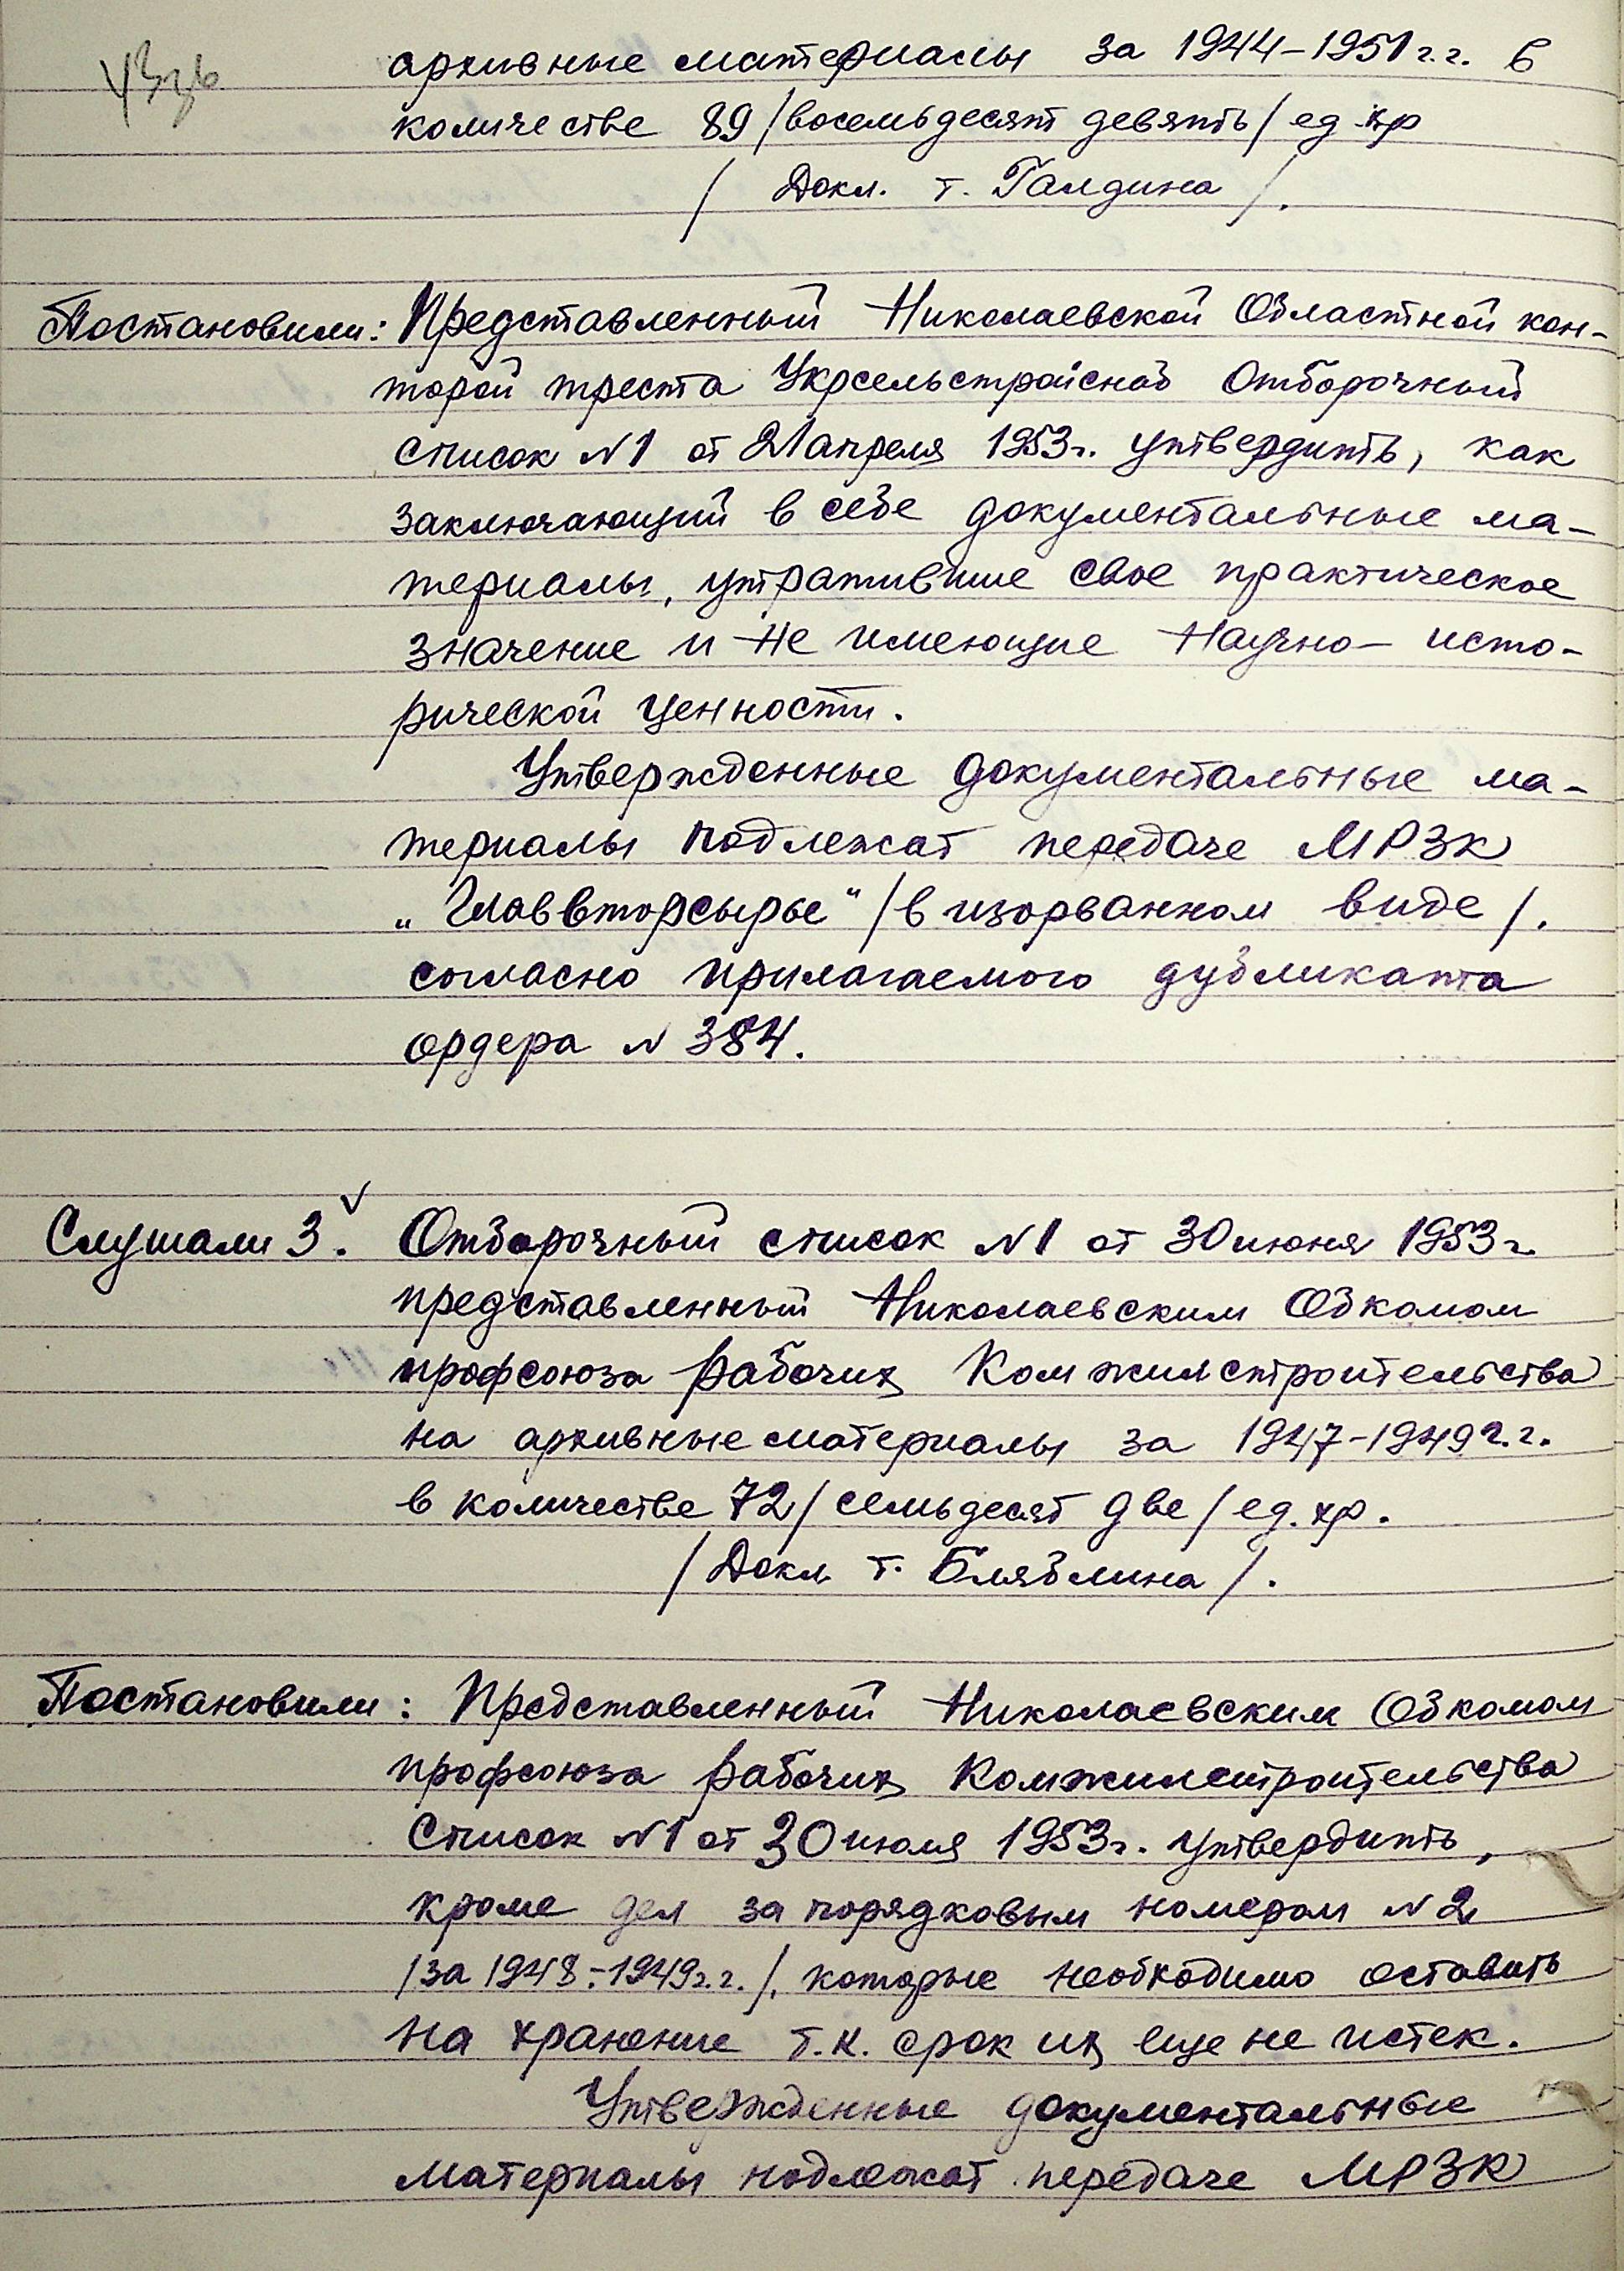 архивные материалы за 1944-1951 г.г. в
количестве 89 /восемьдесят девять/ ед хр
/ Докл. т. Галдина /.
Постановили: Представленный Николаевской Областной кон-
торой треста Укрсельстройснаб Отборочный
список N1 от 21 апреля 1953г. утвердить, как
заключающий в себе документальные ма-
териалы, утратившие свое практическое
значение и не имеющие Научно- исто-
рической ценности.
Утвержденные документальные ма-
териалы подлежат передаче МРЗК
„Главвторсырье“ /в изорванном виде/.
согласно прилагаемого дубликата
ордера N 384.
Слушали 3. Отборочный список N1 от 30 июня 1953 г.
представленный Николаевским Обкомом
профсоюза рабочих Комжилстроительства
на архивные материалы за 1947-1949 г.г.
в количестве 72 / семьдесят две / ед. хр.
/ Докл т. Бляблина /.
Постановили: Представленный Николаевским Обкомом
профсоюза рабочих Комжилстроительства
Список N1 от 30 июля 1953г. утвердить,
кроме дел за порядковым номером N 2
/за 1948-1949г.г./, которые необходимо оставить
на хранение т.к. срок их еще не истек.
Утвержденные документальные
материалы подлежат передаче МРЗК